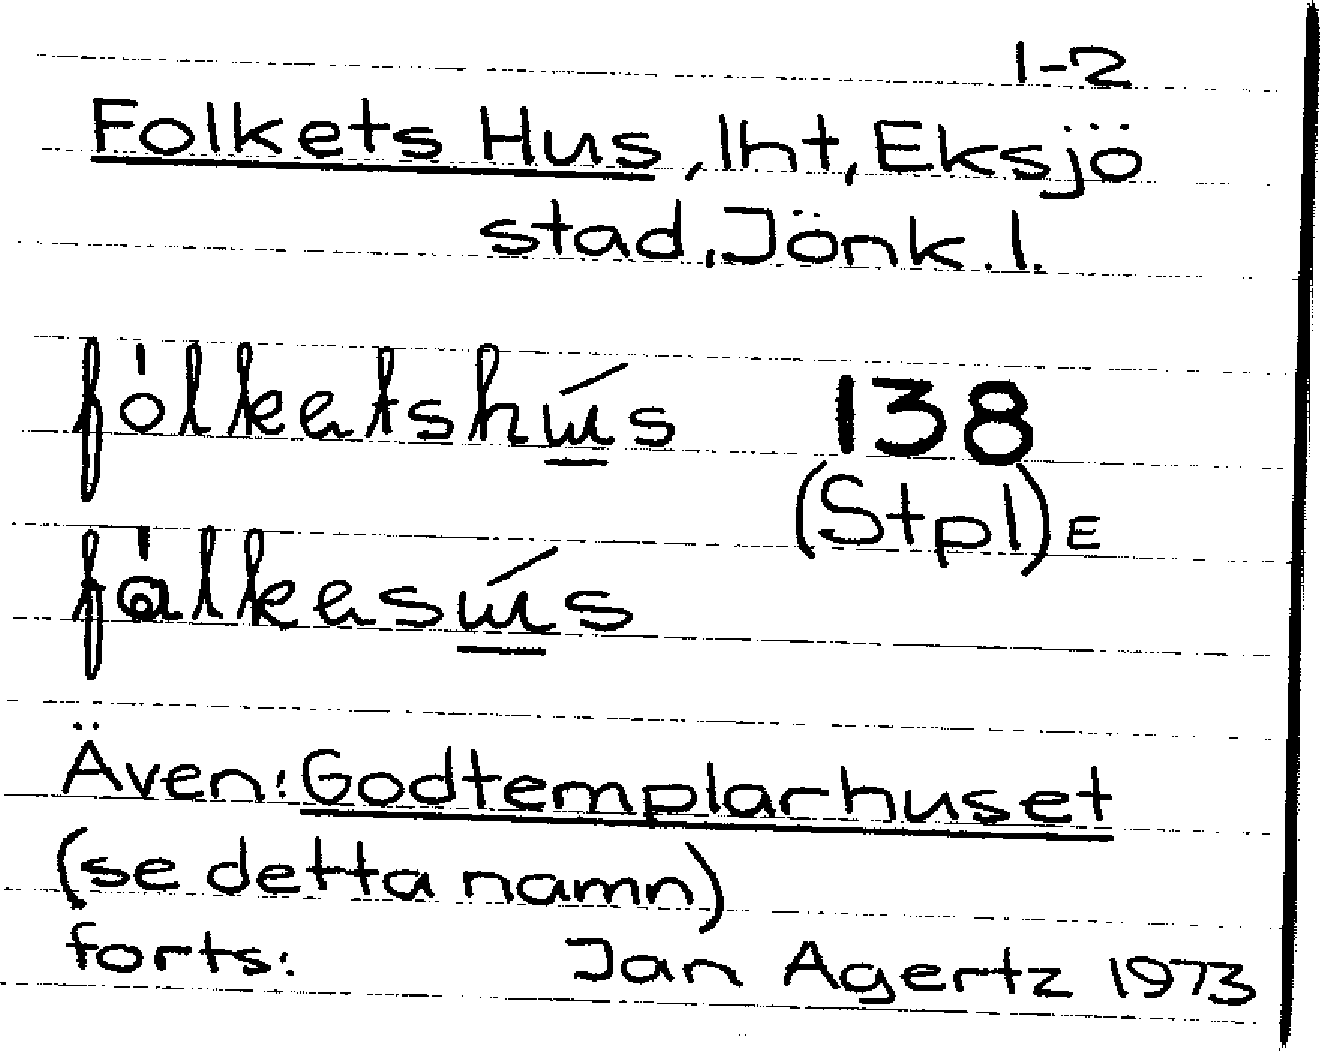 1-2
Folkets Hus, lht, Eksjö
stad, Jönk. l.
fòlketshús 138
(Stpl) E
Även: Godtemplarhuset
(se detta namn)
forts: Jan Agertz 1973